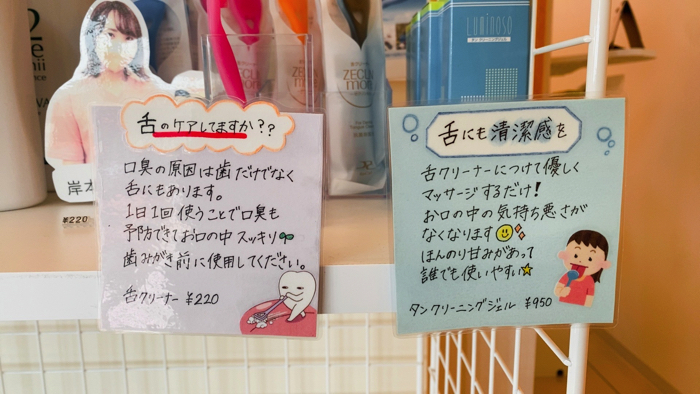 舌のケアしてますか??
口臭の原因は歯だけでなく
舌にもあります。
1日1回使うことで口臭も
予防できてお口の中スッキリ
歯みがき前に使用してください。
舌クリーナー ¥220
舌にも清潔感を
舌クリーナーにつけて優しく
マッサージするだけ!
お口の中の気持ち悪さが
なくなります
ほんのり甘みがあって
誰でも使いやすい
タンクリーニングジェル ¥950
岸本
¥220
ZECLIN
Luminoso
タンクリーニングジェル